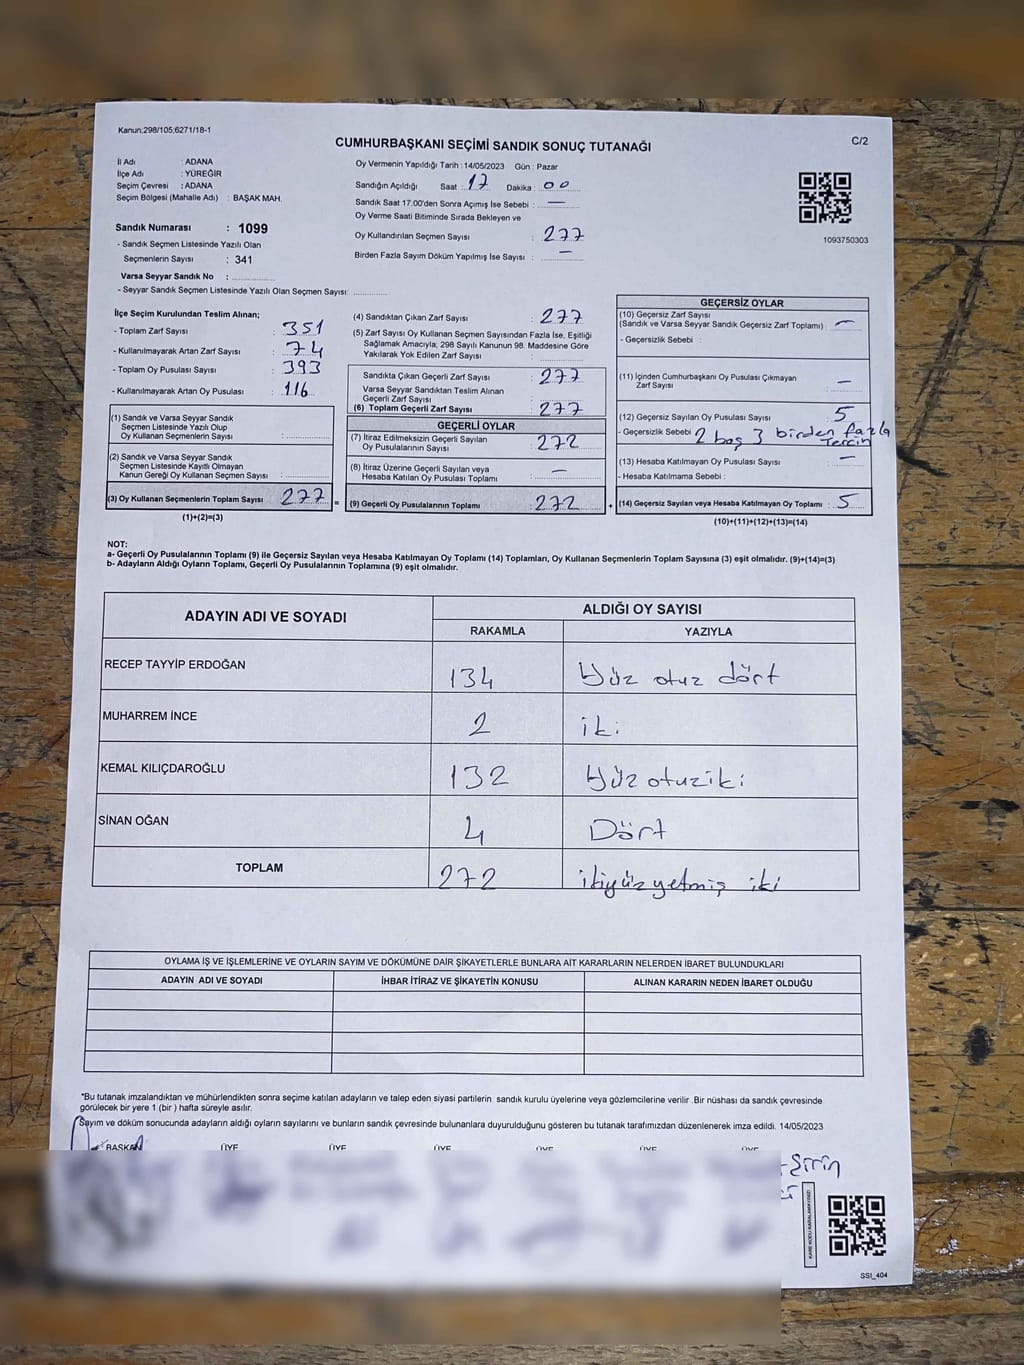 Kanun;298/105;6271/18-1
C/2
CUMHURBAŞKANI SEÇİMİ SANDIK SONUÇ TUTANAĞI
İl Adı : ADANA
İlçe Adı : YÜREĞİR
Seçim Çevresi : ADANA
Seçim Bölgesi (Mahalle Adı) : BAŞAK MAH.
Sandık Numarası : 1099
- Sandık Seçmen Listesinde Yazılı Olan
Seçmenlerin Sayısı : 341
Varsa Seyyar Sandık No :
- Seyyar Sandık Seçmen Listesinde Yazılı Olan Seçmen Sayısı:
Oy Vermenin Yapıldığı Tarih : 14/05/2023 Gün : Pazar
Sandığın Açıldığı Saat : 17 Dakika : 00
Sandık Saat 17.00'den Sonra Açımış İse Sebebi : —
Oy Verme Saati Bitiminde Sırada Bekleyen ve
Oy Kullandırılan Seçmen Sayısı : 277
Birden Fazla Sayım Döküm Yapılmış İse Sayısı : —
1093750303
İlçe Seçim Kurulundan Teslim Alınan;
- Toplam Zarf Sayısı : 351
- Kullanılmayarak Artan Zarf Sayısı : 74
- Toplam Oy Pusulası Sayısı : 393
- Kullanılmayarak Artan Oy Pusulası : 116
(1) Sandık ve Varsa Seyyar Sandık
Seçmen Listesinde Yazılı Olup
Oy Kullanan Seçmenlerin Sayısı :
(2) Sandık ve Varsa Seyyar Sandık
Seçmen Listesinde Kayıtlı Olmayan
Kanun Gereği Oy Kullanan Seçmen Sayısı :
(3) Oy Kullanan Seçmenlerin Toplam Sayısı 277 =
(1)+(2)=(3)
(4) Sandıktan Çıkan Zarf Sayısı : 277
(5) Zarf Sayısı Oy Kullanan Seçmen Sayısından Fazla İse, Eşitliği
Sağlamak Amacıyla, 298 Sayılı Kanunun 98. Maddesine Göre
Yakılarak Yok Edilen Zarf Sayısı :
Sandıkta Çıkan Geçerli Zarf Sayısı : 277
Varsa Seyyar Sandıktan Teslim Alınan
Geçerli Zarf Sayısı :
(6) Toplam Geçerli Zarf Sayısı : 277
GEÇERLİ OYLAR
(7) İtiraz Edilmeksizin Geçerli Sayılan
Oy Pusulalarının Sayısı : 272
(8) İtiraz Üzerine Geçerli Sayılan veya
Hesaba Katılan Oy Pusulası Toplamı : —
(9) Geçerli Oy Pusulalarının Toplamı : 272 +
GEÇERSİZ OYLAR
(10) Geçersiz Zarf Sayısı
(Sandık ve Varsa Seyyar Sandık Geçersiz Zarf Toplamı) : —
- Geçersizlik Sebebi :
(11) İçinden Cumhurbaşkanı Oy Pusulası Çıkmayan
Zarf Sayısı : —
(12) Geçersiz Sayılan Oy Pusulası Sayısı : 5
- Geçersizlik Sebebi : 2 boş 3 birden fazla
Tercih
(13) Hesaba Katılmayan Oy Pusulası Sayısı : —
- Hesaba Katılmama Sebebi :
(14) Geçersiz Sayılan veya Hesaba Katılmayan Oy Toplamı : 5
(10)+(11)+(12)+(13)=(14)
NOT:
a- Geçerli Oy Pusulalarının Toplamı (9) ile Geçersiz Sayılan veya Hesaba Katılmayan Oy Toplamı (14) Toplamları, Oy Kullanan Seçmenlerin Toplam Sayısına (3) eşit olmalıdır. (9)+(14)=(3)
b- Adayların Aldığı Oyların Toplamı, Geçerli Oy Pusulalarının Toplamına (9) eşit olmalıdır.
ADAYIN ADI VE SOYADI
ALDIĞI OY SAYISI
RAKAMLA YAZIYLA
RECEP TAYYİP ERDOĞAN 134 Yüz otuz dört
MUHARREM İNCE 2 iki
KEMAL KILIÇDAROĞLU 132 Yüz otuz iki
SİNAN OĞAN 4 Dört
TOPLAM 272 ikiyüz yetmiş iki
OYLAMA İŞ VE İŞLEMLERİNE VE OYLARIN SAYIM VE DÖKÜMÜNE DAİR ŞİKAYETLERLE BUNLARA AİT KARARLARIN NELERDEN İBARET BULUNDUKLARI
ADAYIN ADI VE SOYADI İHBAR İTİRAZ VE ŞİKAYETİN KONUSU ALINAN KARARIN NEDEN İBARET OLDUĞU
*Bu tutanak imzalandıktan ve mühürlendikten sonra seçime katılan adayların ve talep eden siyasi partilerin sandık kurulu üyelerine veya gözlemcilerine verilir .Bir nüshası da sandık çevresinde
görülecek bir yere 1 (bir ) hafta süreyle asılır.
Sayım ve döküm sonucunda adayların aldığı oyların sayılarını ve bunların sandık çevresinde bulunanlara duyurulduğunu gösteren bu tutanak tarafımızdan düzenlenerek imza edildi. 14/05/2023
BAŞKAN ÜYE ÜYE ÜYE ÜYE ÜYE ÜYE
SSI_404